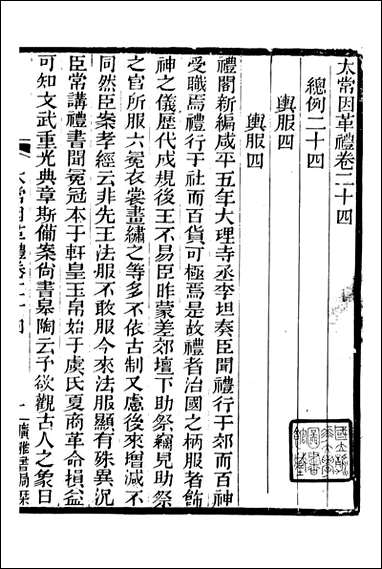 太常因革禮卷二十四
總例二十四
輿服四
輿服四
禮閣新編咸平五年大理寺丞李坦奏臣聞禮行于郊而百神
受職焉禮行于社而百貨可極焉是故禮者治國之柄服者飾
神之儀歷代成規後王不易臣昨蒙差郊壇下助祭竊見助祭
之官所服六冕衣裳畫繡之等多不依古制又慮後來增減不
同然臣案孝經云非先王法服不敢服今來法服顯有殊異況
臣常講禮書聞冕冠本于軒皇玉帛始于虞氏夏商革命損益
可知文武重光典章斯備案尚書皋陶云予欲觀古人之象日
太常因革禮卷二十四
一
廣雅書局栞